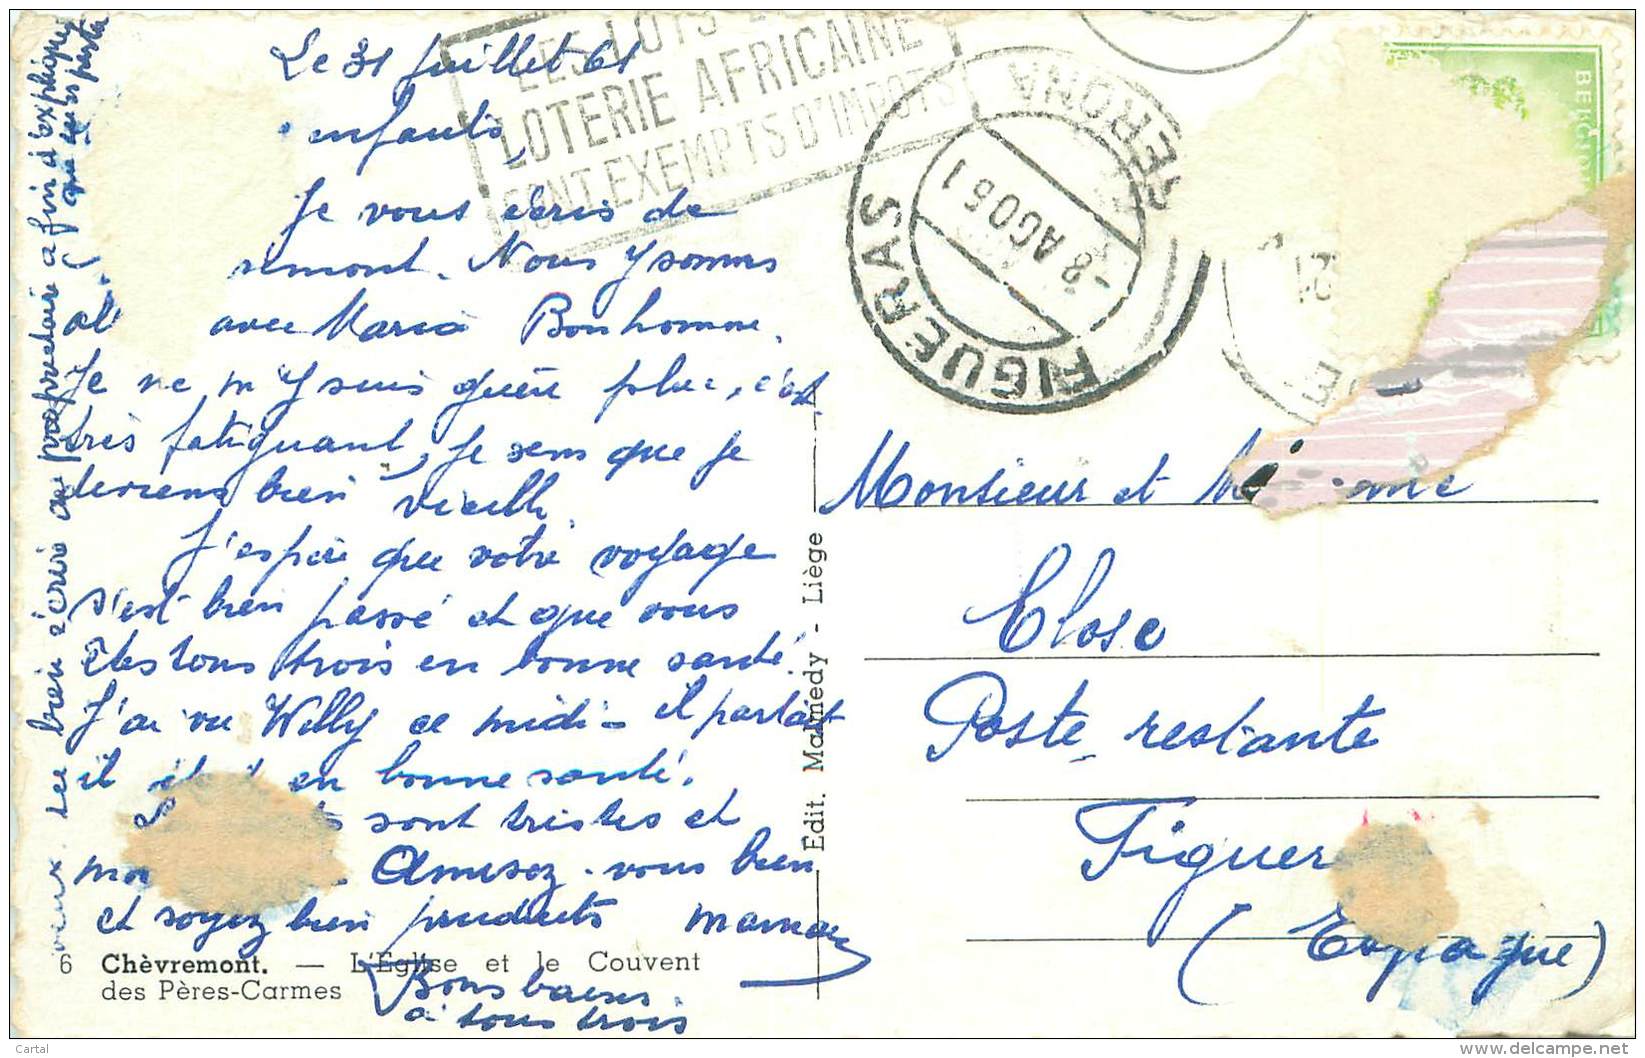 Le 31 Juillet 61
enfants,
Je vous écris de
remont. Nous y sommes
avec Maria Bonhomme.
Je ne m'y suis guère plue, c'est
très fatiguant, je sens que je
deviens bien vieille
J'espère que votre voyage
s'est bien passé et que vous
êtes tous trois en bonne santé.
J'ai vu Willy ce midi - il partait
il en bonne santé.
sont tristes et
Amusez-vous bien
et soyez bien prudents maman
Bons baisers
à tous trois
bien écris au propriétaire afin d'expliquer
LES LOTS
LOTERIE AFRICAINE
SONT EXEMPTS D'IMPOTS
FIGUERAS
GERONA
-8 AGO 61
BELGI
Monsieur et
Close
Poste restante
Figuer
(Espagne)
Edit. Malmedy - Liège
6 Chèvremont. — L'Eglise et le Couvent
des Pères-Carmes
Cartal
www.delcampe.net